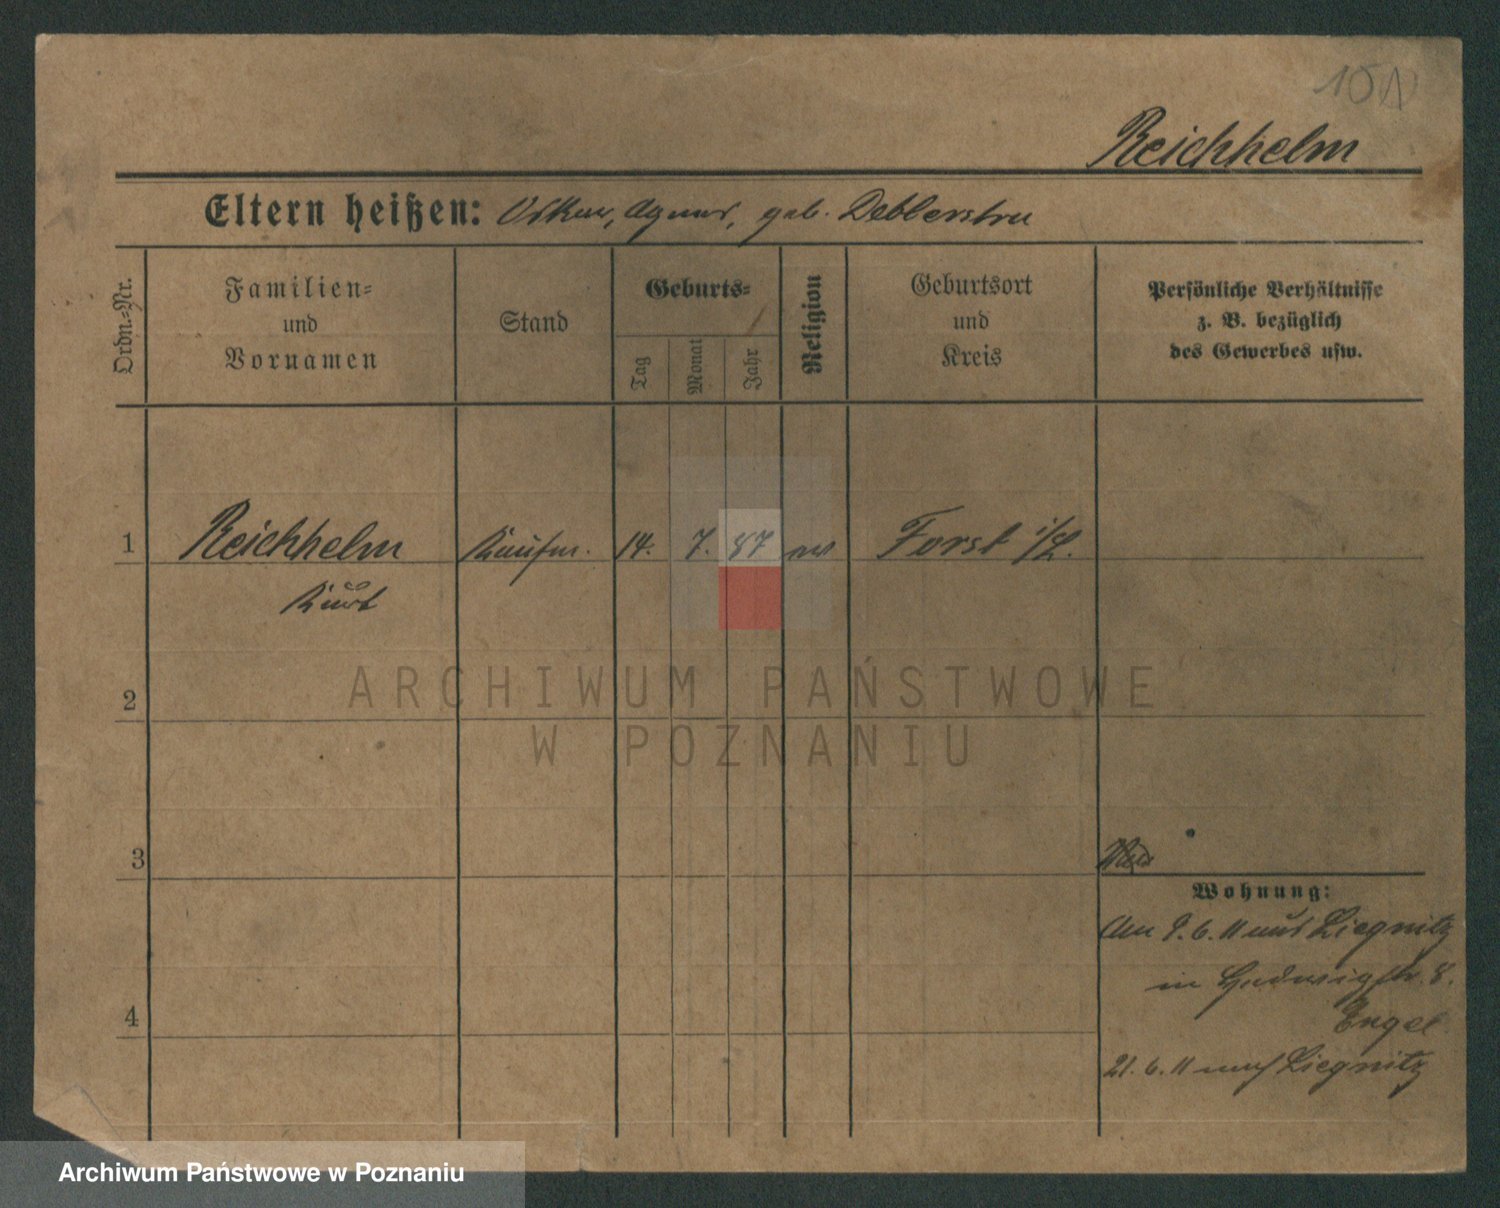 Reichhelm
Eltern heißen: Oskar, Agnes, geb.
Ordn.-Nr.
Familien-
und
Vornamen
Stand
Geburts-
Tag
Monat
Jahr
Religion
Geburtsort
und
Kreis
Persönliche Verhältnisse
z. B. bezüglich
des Gewerbes usw.
1
Reichhelm
Kurt
Kaufm.
14.
7.
87
ev
Forst i/L.
2
3
4
Wohnung:
Am 9.6.11 aus Liegnitz
in Hedwigstr. 8.
Engel
21.6.11 nach Liegnitz
ARCHIWUM PAŃSTWOWE
W POZNANIU
Archiwum Państwowe w Poznaniu